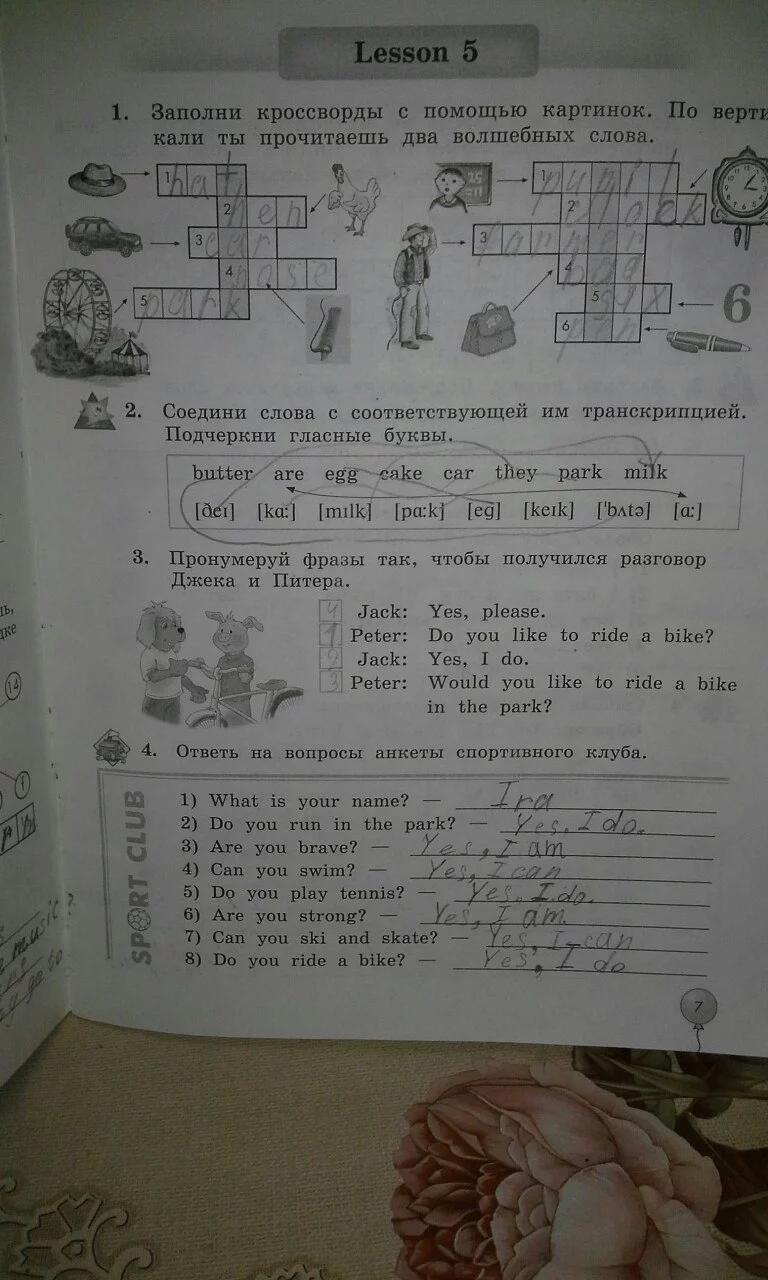 Lesson 5
1. Заполни кроссворды с помощью картинок. По верти
кали ты прочитаешь два волшебных слова.
1 hat
2 hen
3 car
4 nose
5 park
1 pupil
2 clock
3 farmer
4 bag
5 six
6
6
2. Соедини слова с соответствующей им транскрипцией.
Подчеркни гласные буквы.
butter are egg cake car they park milk
[ðeɪ] [kɑ:] [mɪlk] [pɑ:k] [eg] [keɪk] ['bʌtə] [ɑ:]
3. Пронумеруй фразы так, чтобы получился разговор
Джека и Питера.
4 Jack: Yes, please.
1 Peter: Do you like to ride a bike?
2 Jack: Yes, I do.
3 Peter: Would you like to ride a bike
in the park?
4. Ответь на вопросы анкеты спортивного клуба.
SPORT CLUB
1) What is your name? — Ira
2) Do you run in the park? — Yes, I do.
3) Are you brave? — Yes, I am
4) Can you swim? — Yes, I can
5) Do you play tennis? — Yes, I do.
6) Are you strong? — Yes, I am
7) Can you ski and skate? — Yes, I can
8) Do you ride a bike? — Yes, I do
7
14
1